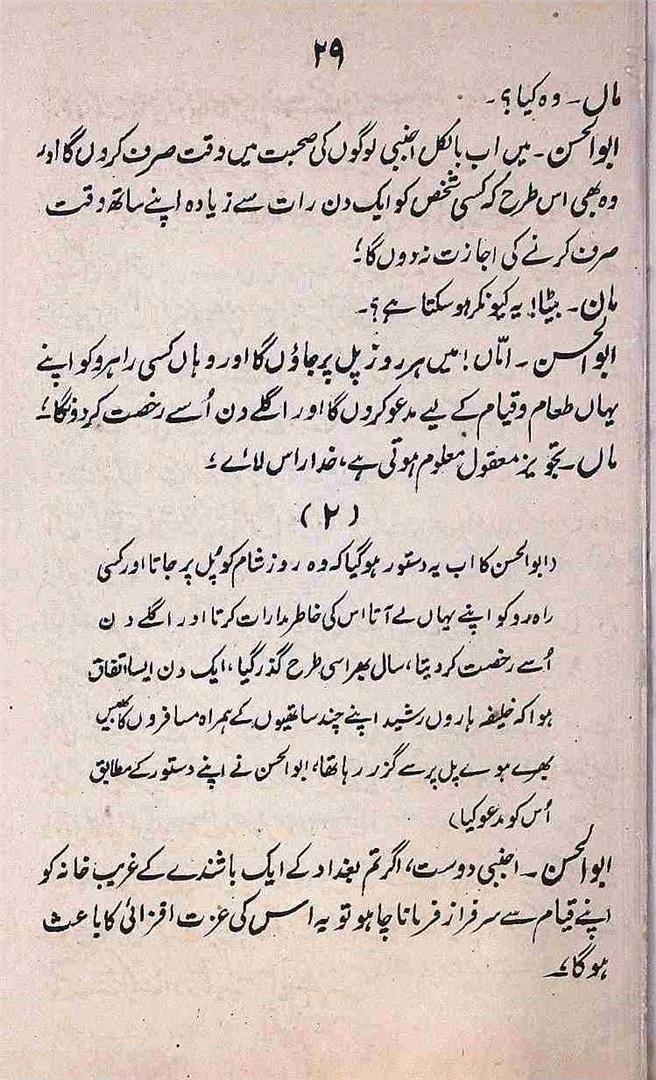 ۲۹
ماں۔ وہ کیا؟۔
ابوالحسن۔ میں اب بالکل اجنبی لوگوں کی صحبت میں وقت صرف کروں گا اور
وہ بھی اس طرح کہ کسی شخص کو ایک دن رات سے زیادہ اپنے ساتھ وقت
صرف کرنے کی اجازت نہ دوں گا؛
مان۔ بیٹا! یہ کیونکر ہو سکتا ہے؟۔
ابوالحسن۔ امّاں! میں ہر روز پل پر جاؤں گا اور وہاں کسی راہرو کو اپنے
یہاں طعام و قیام کے لیے مدعو کروں گا اور اگلے دن اُسے رخصت کر دونگا؛
ماں۔ تجویز معقول معلوم ہوتی ہے، خدا راس لائے؛
(۲)
(ابوالحسن کا اب یہ دستور ہو گیا کہ وہ روز شام کو پُل پر جاتا اور کسی
راہ رو کو اپنے یہاں لے آتا اس کی خاطر مدارات کرتا اور اگلے دن
اُسے رخصت کر دیتا، سال بھر اسی طرح گذر گیا، ایک دن ایسا اتفاق
ہوا کہ خلیفہ ہاروں رشید اپنے چند ساتھیوں کے ہمراہ مسافروں کا بھیس
بھرے ہوے پل پر سے گزر رہا تھا، ابوالحسن نے اپنے دستور کے مطابق
اُس کو مدعو کیا)
ابوالحسن۔ اجنبی دوست، اگر تم بغداد کے ایک باشندے کے غریب خانہ کو
اپنے قیام سے سرفراز فرمانا چاہو تو یہ اس کی عزت افزائی کا باعث
ہوگا؛۔